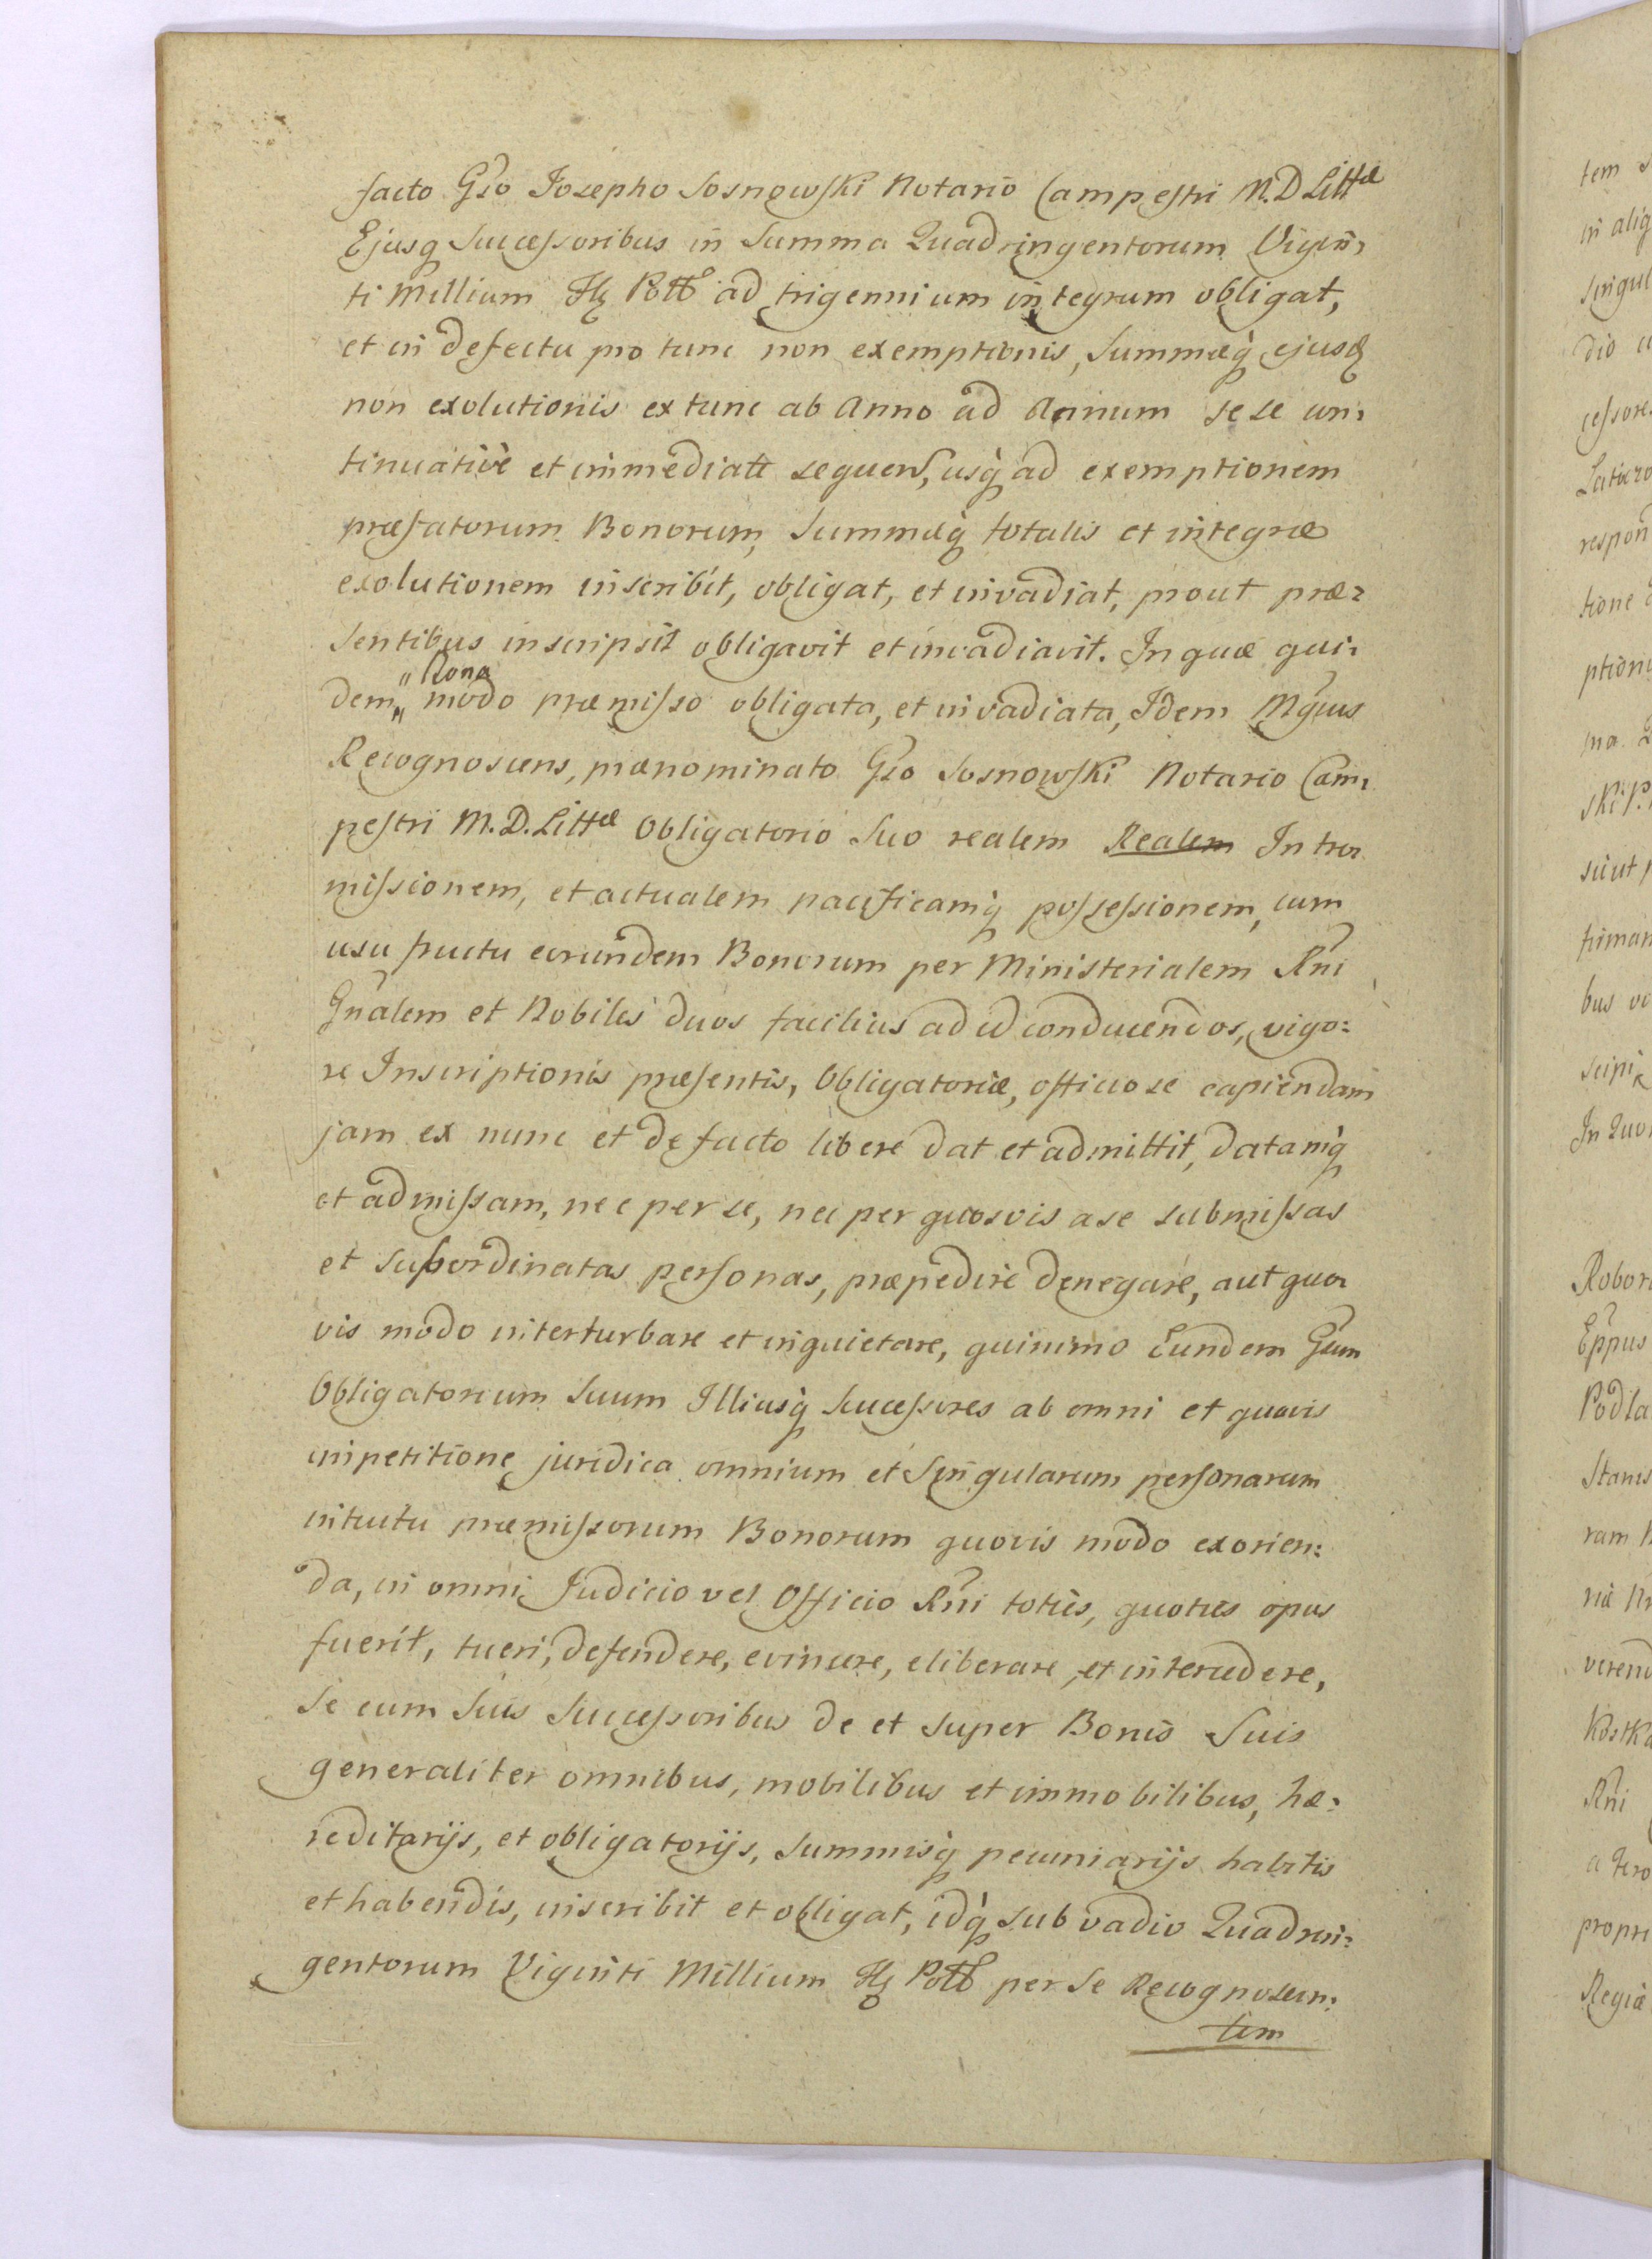 facto Gso Josepho Sosnowski Notario Campestri M.D. Littæ
Ejusq Successoribus in Summa Quadringentorum Vigin,
ti Millium Flg Poltt ad trigennium integrum obligat,
et in defectu pro tunc non exemptionis, Summæq ejusd
non exolutionis ex tunc ab Anno ad Annum se se con,
tinuative et immediate sequen, usq ad exemptionem
præfatorum Bonorum, Summæq totalis et integræ
exolutionem inscribit, obligat, et invadiat, prout præ:
sentibus inscripsit obligavit et invadiavit. In quæ qui,
dem " Bona modo præmisso obligata, et invadiata, Idem Mgcus
Recognoscens, prænominato Gso Sosnowski Notario Cam,
pestri M.D. Littæ Obligatorio Suo realem Realem Intro,
missionem, et actualem pacificamq possessionem, cum
usu fructu eorundem Bonorum per Ministerialem Rni
Gnalem et Nobiles duos facilius ad id conducendos, vigo:
re Inscriptionis præsentis, Obligatoriæ, officiose capiendam
jam ex nunc et de facto libere dat et admittit, datamq
et admissam, nec per se, nec per quosvis a se submissas
et subordinatas personas, præpedire denegare, aut quo,
vis modo interturbare et inquietare, quinimo Eundem Gsum
Obligatorium Suum Illiusq Successores ab omni et quavis
impetitione juridica omnium et Singularum personarum
intuitu præmissorum Bonorum quovis modo exorien:
da, in omni Judicio vel Officio Rni toties, quoties opus
fuerit, tueri, defendere, evincere, eliberare et intercedere,
Se cum Suis Successoribus de et super Bonis Suis
generaliter omnibus, mobilibus et immobilibus, hæ:
reditarijs, et obligatorijs, Summisq pecuniarijs habitis
et habendis, inscribit et obligat, idq sub vadio Quadrin:
gentorum Viginti Millium Flg Poltt per Se Recognoscen:
tem